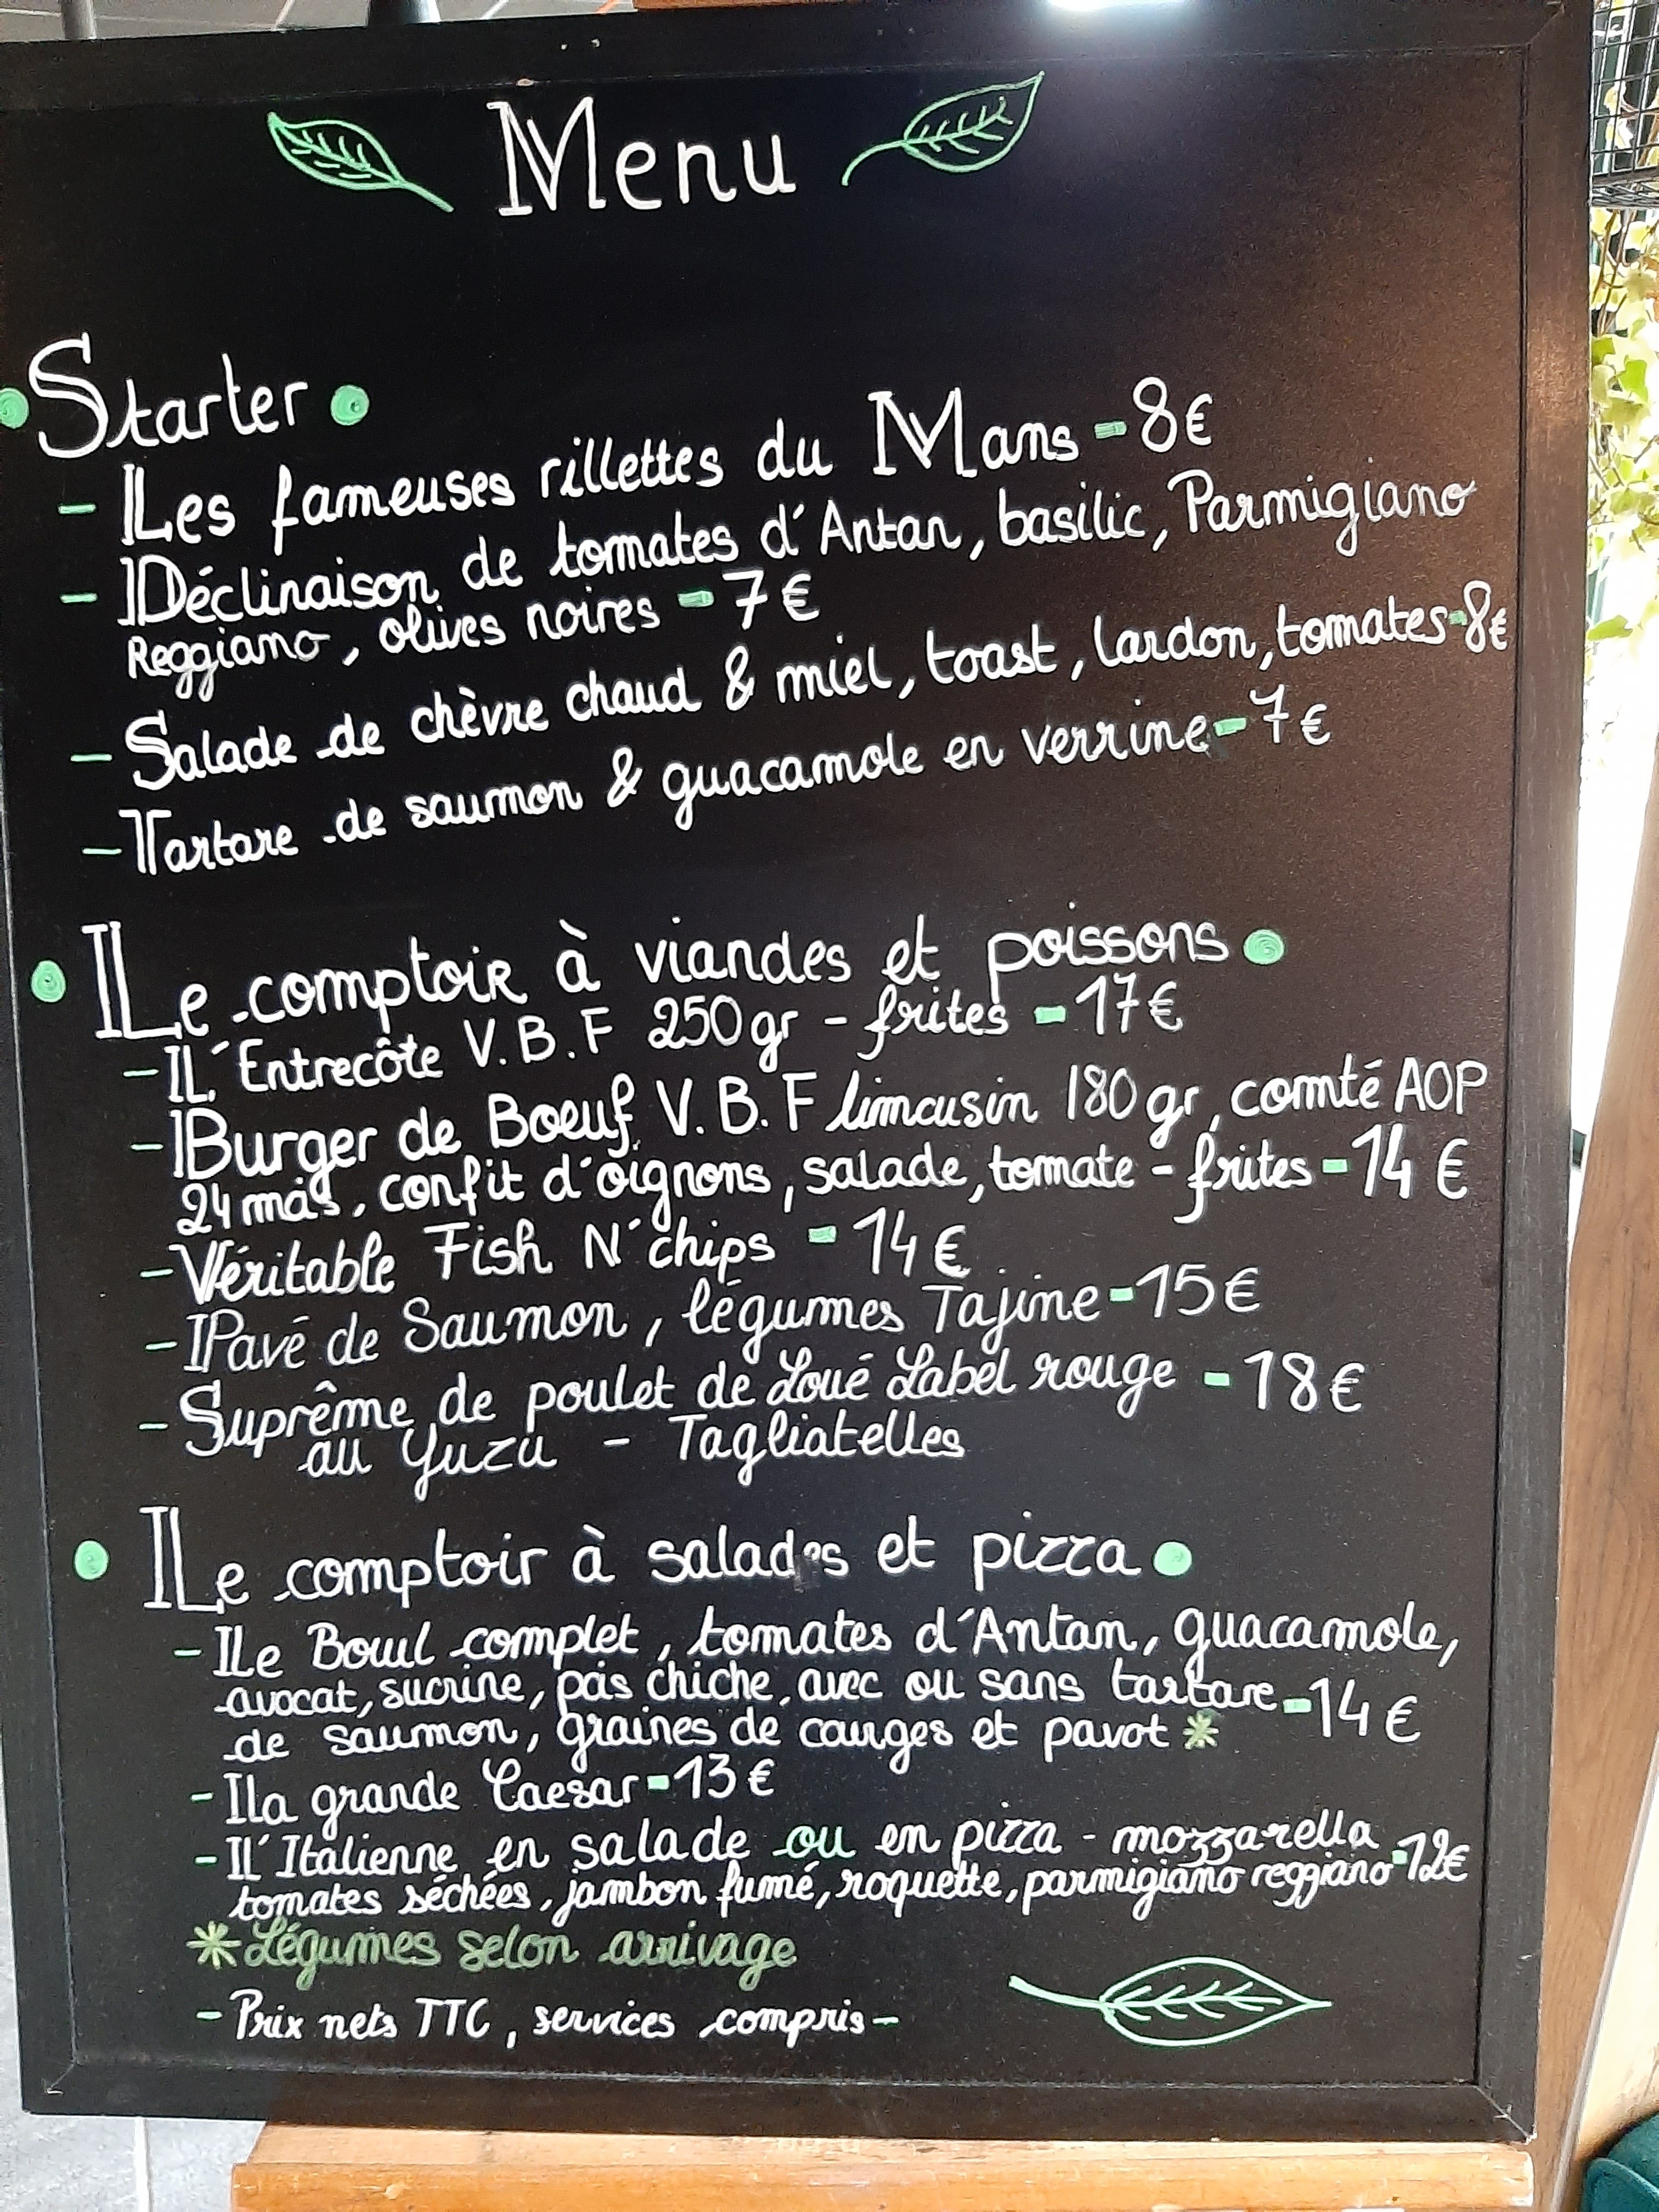 Menu
Starter
- Les fameuses rillettes du Mans - 8€
- Déclinaison de tomates d'Antan, basilic, Parmigiano
Reggiano, olives noires - 7€
- Salade de chèvre chaud & miel, toast, lardon, tomates - 8€
- Tartare de saumon & guacamole en verrine - 7€
Le comptoir à viandes et poissons
- L'Entrecôte V.B.F 250gr - frites - 17€
- Burger de Boeuf V.B.F limousin 180gr, comté AOP
24 mois, confit d'oignons, salade, tomate - frites - 14€
- Véritable Fish N'chips - 14€
- Pavé de Saumon, légumes Tajine - 15€
- Suprême de poulet de Loué Label rouge - 18€
au Yuzu - Tagliatelles
Le comptoir à salades et pizza
- Le Bowl complet, tomates d'Antan, guacamole,
avocat, sucrine, pois chiche, avec ou sans tartare - 14€
de saumon, graines de courges et pavot *
- La grande Caesar - 13€
- L'Italienne en salade ou en pizza - mozzarella
tomates séchées, jambon fumé, roquette, parmigiano reggiano - 12€
* Légumes selon arrivage
- Prix nets TTC, services compris -